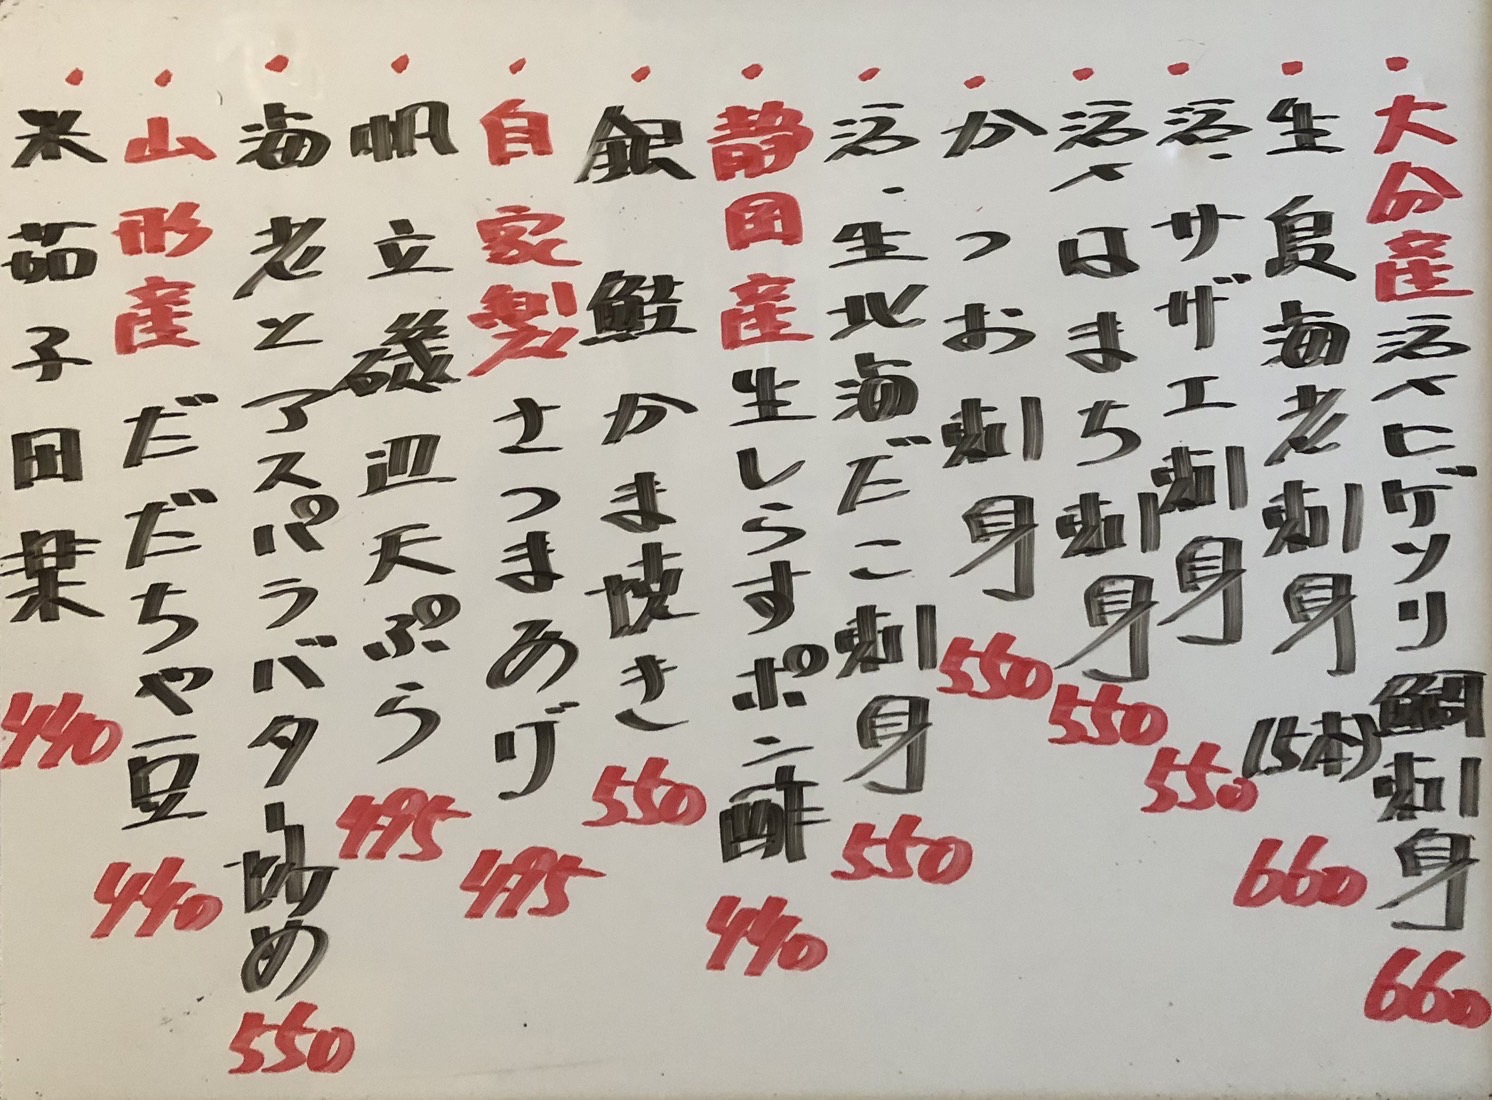 ・大分産活〆ヒゲソリ鯛刺身 660
・生 海老刺身 (5本) 660
・活・サザエ刺身 550
・活〆はまち刺身 550
・かつお刺身 550
・活・生北海だこ刺身 550
・静岡産生しらすポン酢 440
・銀鮭かま焼き 550
・自家製さつまあげ 495
・帆立磯辺天ぷら 495
・海老とアスパラバター炒め 550
・山形産だだちゃ豆 440
・米茄子田楽 440